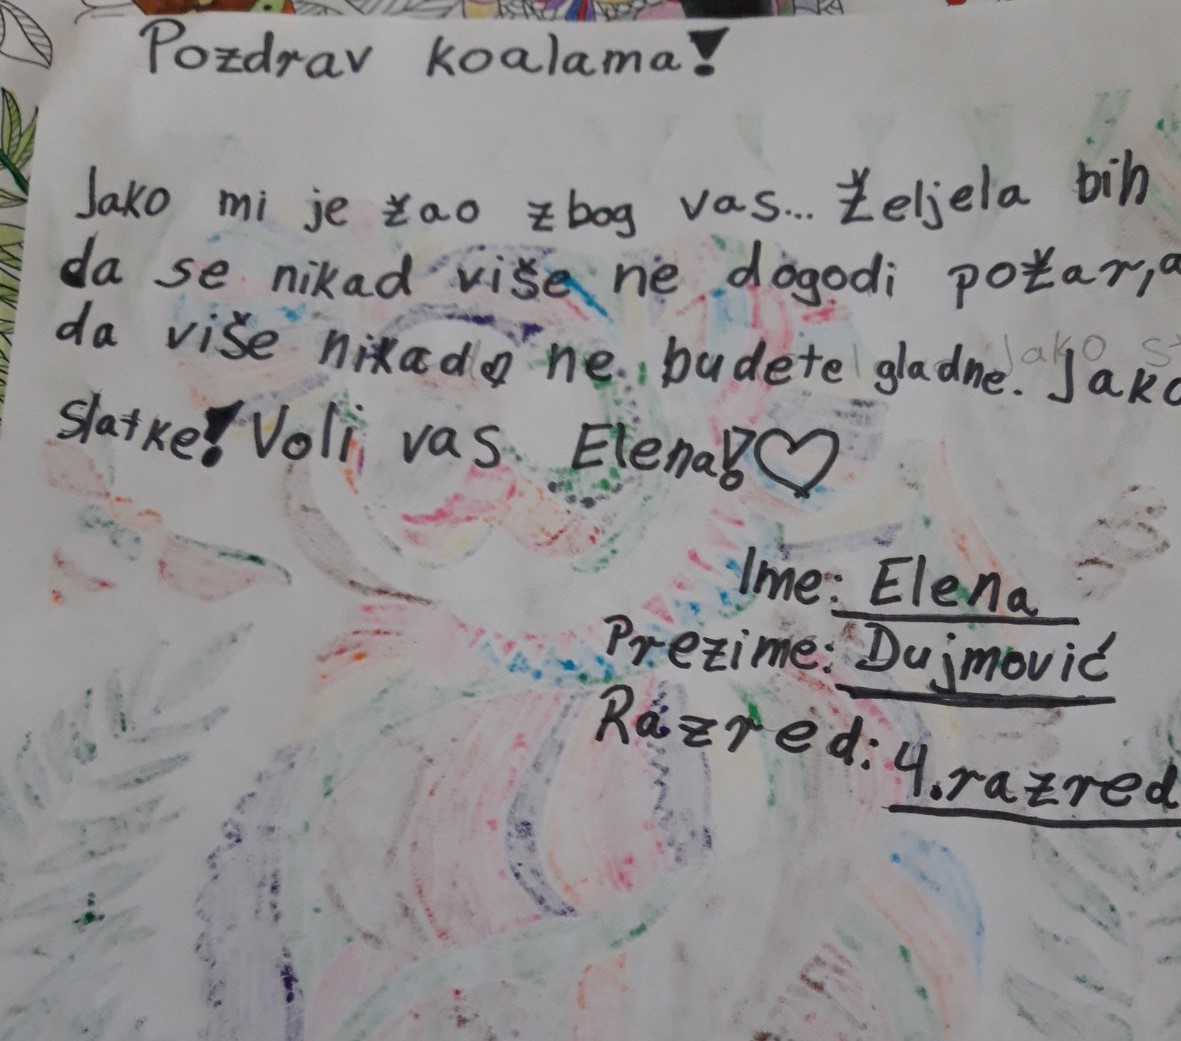 Pozdrav koalama!
Jako mi je žao zbog vas... Željela bih
da se nikad više ne dogodi požar, a
da više nikada ne budete gladne. Jako
slatke! Voli vas Elena! ♡
Ime: Elena
Prezime: Dujmović
Razred: 4. razred